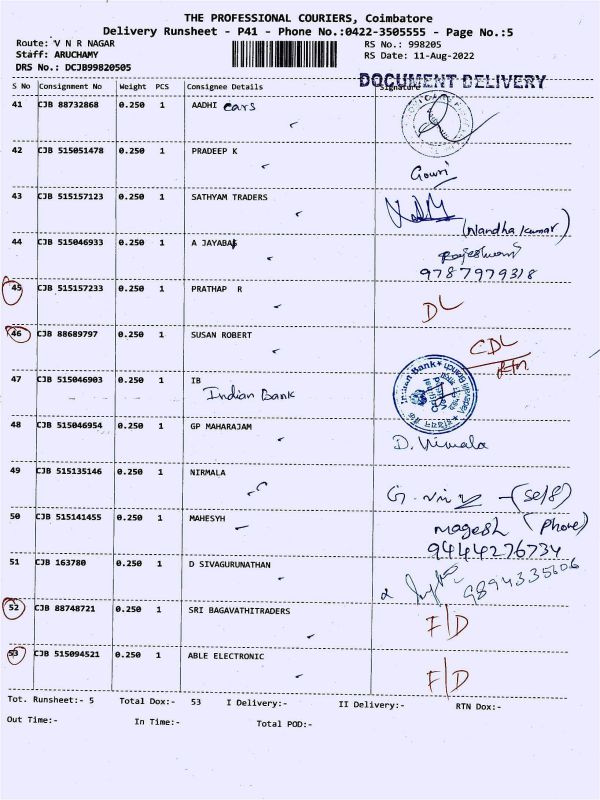 THE PROFESSIONAL COURIERS, Coimbatore
Delivery Runsheet - P41 - Phone No.:0422-3505555 - Page No.:5
Route: V N R NAGAR RS No.: 998205
Staff: ARUCHAMY RS Date: 11-Aug-2022
DRS No.: DCJB99820505
DOCUMENT DELIVERY
S No Consignment No Weight PCS Consignee Details Signature
41 CJB 88732868 0.250 1 AADHI cars
42 CJB 515051478 0.250 1 PRADEEP K
Gowri
43 CJB 515157123 0.250 1 SATHYAM TRADERS
(Nandha Kumar)
44 CJB 515046933 0.250 1 A JAYABAS
9787979318
45 CJB 515157233 0.250 1 PRATHAP R DL
46 CJB 88689797 0.250 1 SUSAN ROBERT CDL
47 CJB 515046903 0.250 1 IB Indian Bank
Indian Bank
48 CJB 515046954 0.250 1 GP MAHARAJAM D. Vimala
49 CJB 515135146 0.250 1 NIRMALA
(Self)
50 CJB 515141455 0.250 1 MAHESYH Magesh (Phone)
9444276734
51 CJB 163780 0.250 1 D SIVAGURUNATHAN 9894335606
52 CJB 88748721 0.250 1 SRI BAGAVATHITRADERS F/D
53 CJB 515094521 0.250 1 ABLE ELECTRONIC F/D
Tot. Runsheet:- 5 Total Dox:- 53 I Delivery:- II Delivery:- RTN Dox:-
Out Time:- In Time:- Total POD:-